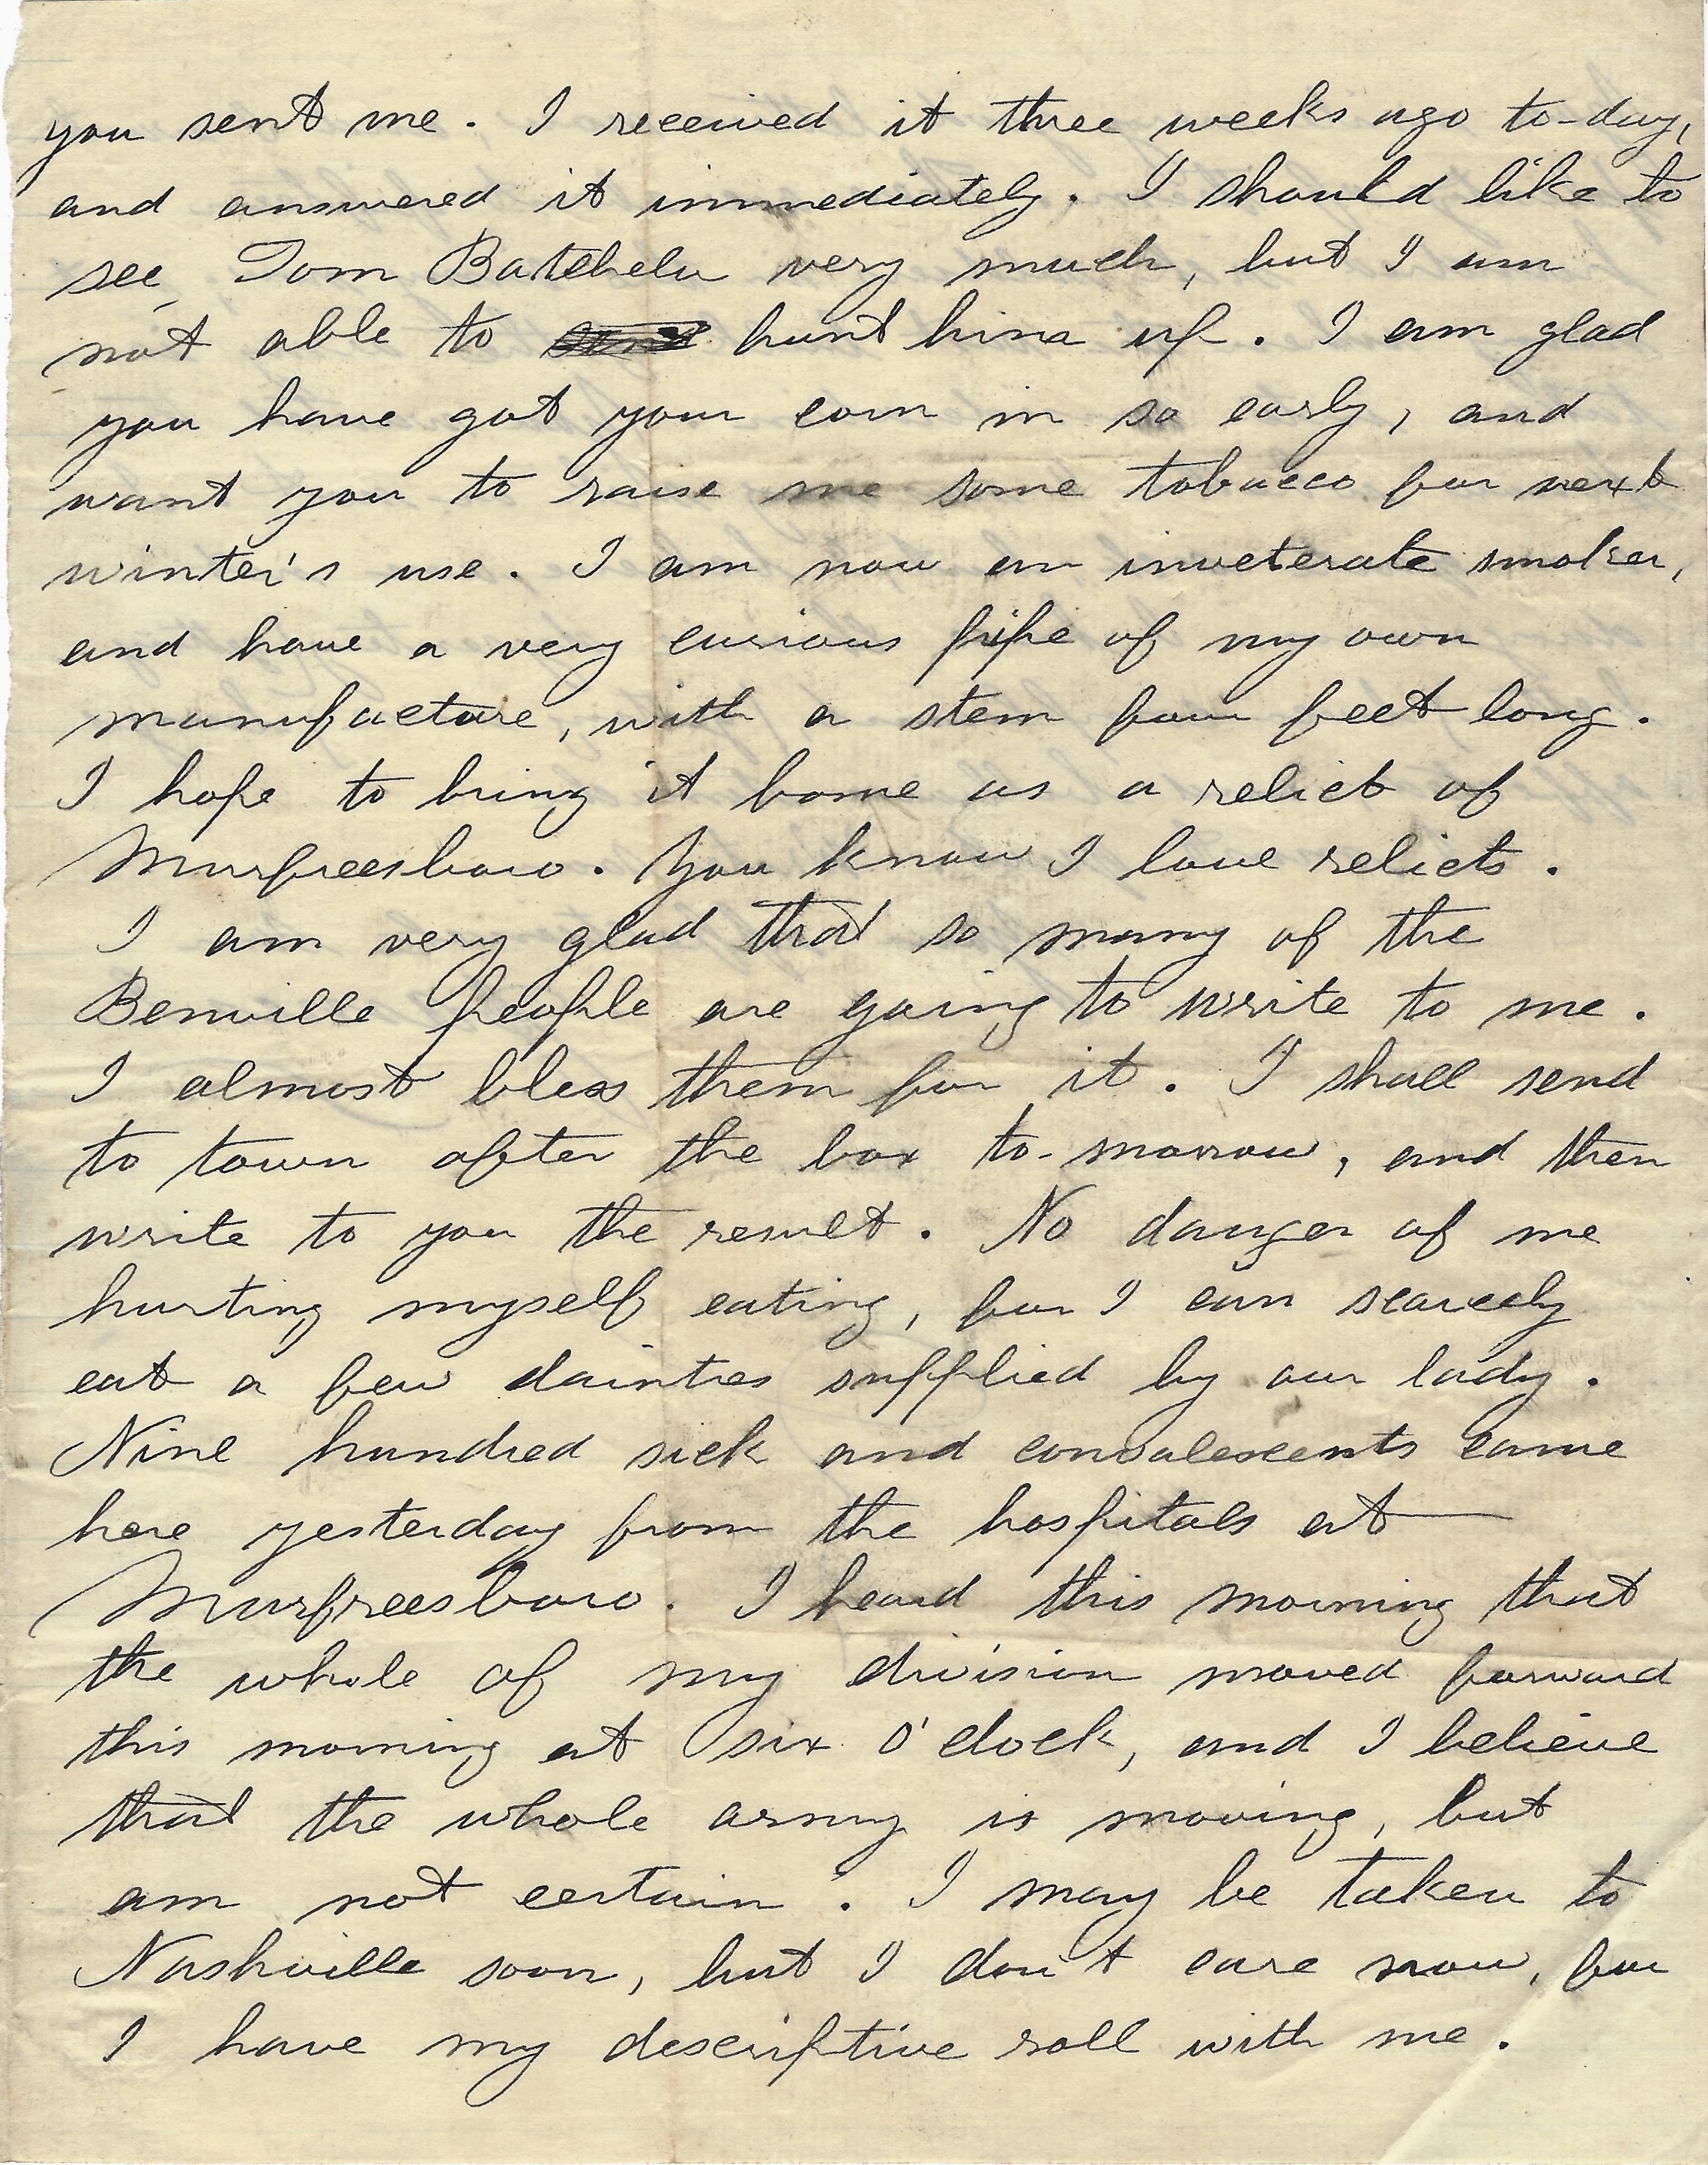 you sent me. I received it three weeks ago to-day,
and answered it immediately. I should like to
see Tom Batchelu very much, but I am
not able to hunt him up. I am glad
you have got your corn in so early, and
want you to raise me some tobacco for next
winter's use. I am now an inveterate smoker,
and have a very curious pipe of my own
manufacture, with a stem four feet long.
I hope to bring it home as a relict of
Murfreesboro. You know I love relicts.
I am very glad that so many of the
Benville people are going to write to me.
I almost bless them for it. I shall send
to town after the box to-morrow, and then
write to you the result. No danger of me
hurting myself eating, for I can scarcely
eat a few dainties supplied by our lady.
Nine hundred sick and convalescents came
here yesterday from the hospitals at
Murfreesboro. I heard this morning that
the whole of my division moved forward
this morning at six o'clock, and I believe
that the whole army is moving, but
am not certain. I may be taken to
Nashville soon, but I don't care now, for
I have my descriptive roll with me.